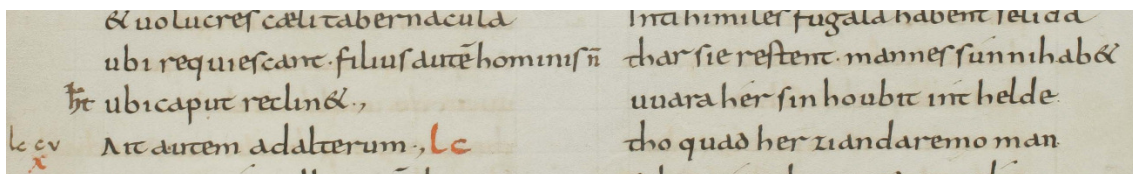 & uolucres cæli tabernacula
ubi requiescant· filius autē hominis n̄
h̄t ubi caput reclin&·,
lc cv Ait autem ad alterum·, Lc
x
Inti himiles fugala habent selida
thar sie restent· mannes sun ni hab&
uuara her sin houbit inthelde
tho quad her zi andaremo man